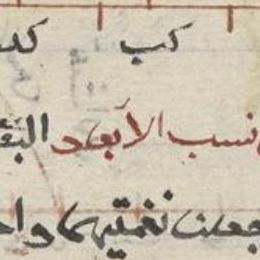 كب كد
نسب الأبعاد البقـ
جعلت نغمتيهما واحـ